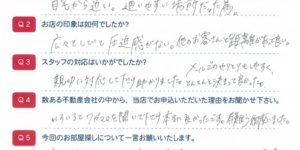 自宅から近い。通いやすい場所だった為。
Q2 お店の印象は如何でしたか?
広々としていて圧迫感がない。他のお客さんと距離があって良い。
Q3 スタッフの対応はいかがでしたか?
メールでのやりとりもしやすく、
親切に対応して下さり助かりました。
Q4 数ある不動産会社の中から、当店でお申込いただいた理由をお聞かせ下さい。
いろいろとワガママを聞いて下さり
Q5 今回のお部屋探しについて一言お願いいたします。